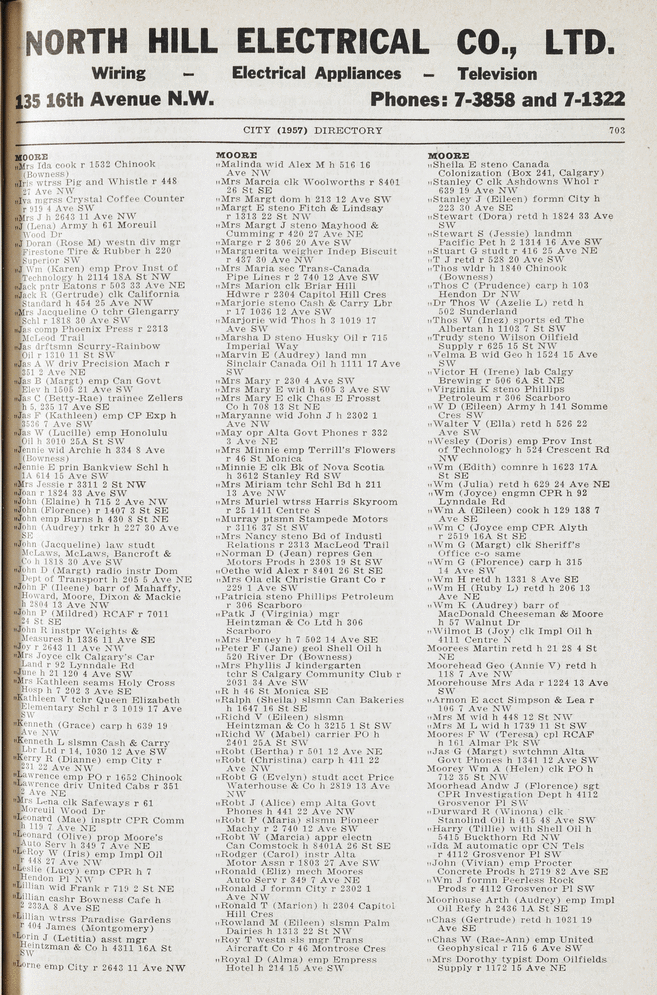 NORTH HILL ELECTRICAL CO., LTD.
Wiring – Electrical Appliances – Television
135 16th Avenue N.W. Phones: 7-3858 and 7-1322
CITY (1957) DIRECTORY 703
MOORE
"Mrs Ida cook r 1532 Chinook
(Bowness)
"Iris wtrss Pig and Whistle r 448
27 Ave NW
"Iva mgrss Crystal Coffee Counter
r 919 4 Ave SW
"Mrs J h 2643 11 Ave NW
"J (Lena) Army h 61 Moreuil
Wood Dr
"J Doran (Rose M) westn div mgr
Firestone Tire & Rubber h 220
Superior SW
"J Wm (Karen) emp Prov Inst of
Technology h 2114 18A St NW
"Jack pntr Eatons r 503 33 Ave NE
"Jack R (Gertrude) clk California
Standard h 454 25 Ave NW
"Mrs Jacqueline O tchr Glengarry
Schl r 1818 30 Ave SW
"Jas comp Phoenix Press r 2313
McLeod Trail
"Jas drftsmn Scurry-Rainbow
Oil r 1310 11 St SW
"Jas A W driv Precision Mach r
351 2 Ave NE
"Jas B (Margt) emp Can Govt
Elev h 1505 21 Ave SW
"Jas C (Betty-Rae) trainee Zellers
h 5, 235 17 Ave SE
"Jas F (Kathleen) emp CP Exp h
3536 7 Ave SW
"Jas W (Lucille) emp Honolulu
Oil h 3010 25A St SW
"Jennie wid Archie h 334 8 Ave
(Bowness)
"Jennie E prin Bankview Schl h
1A 614 15 Ave SW
"Mrs Jessie r 3311 2 St NW
"Joan r 1824 33 Ave SW
"John (Elaine) h 715 2 Ave NW
"John (Florence) r 1407 3 St SE
"John emp Burns h 430 8 St NE
"John (Audrey) trkr h 227 30 Ave
SE
"John (Jacqueline) law studt
McLaws, McLaws, Bancroft &
Co h 1818 30 Ave SW
"John D (Margt) radio instr Dom
Dept of Transport h 205 5 Ave NE
"John F (Ileene) barr of Mahaffy,
Howard, Moore, Dixon & Mackie
h 2804 13 Ave NW
"John P (Mildred) RCAF r 7011
24 St SE
"John R instpr Weights &
Measures h 1336 11 Ave SE
"Joy r 2643 11 Ave NW
"Mrs Joyce clk Calgary's Car
Land r 92 Lynndale Rd
"June h 21 120 4 Ave SW
"Mrs Kathleen seams Holy Cross
Hosp h 7 202 3 Ave SE
"Kathleen V tchr Queen Elizabeth
Elementary Schl r 3 1019 17 Ave
SW
"Kenneth (Grace) carp h 639 19
Ave NW
"Kenneth L slsmn Cash & Carry
Lbr Ltd r 14, 1030 12 Ave SW
"Kerry R (Dianne) emp City r
231 22 Ave NW
"Lawrence emp PO r 1652 Chinook
"Lawrence driv United Cabs r 351
2 Ave NE
"Mrs Lena clk Safeways r 61
Moreuil Wood Dr
"Leonard (Mae) insptr CPR Comm
h 119 7 Ave NE
"Leonard (Olive) prop Moore's
Auto Serv h 349 7 Ave NE
"LeRoy W (Iris) emp Impl Oil
r 448 27 Ave NW
"Leslie (Lucy) emp CPR h 7
Hendon Pl NW
"Lillian wid Frank r 719 2 St NE
"Lillian cashr Bowness Cafe h
2 233A 8 Ave SE
"Lillian wtrss Paradise Gardens
r 404 James (Montgomery)
"Lorin J (Letitia) asst mgr
Heintzman & Co h 4311 16A St
SW
"Lorne emp City r 2643 11 Ave NW
MOORE
"Malinda wid Alex M h 516 16
Ave NW
"Mrs Marcia clk Woolworths r 8401
26 St SE
"Mrs Margt dom h 213 12 Ave SW
"Margt E steno Fitch & Lindsay
r 1313 22 St NW
"Mrs Margt J steno Mayhood &
Cumming r 420 27 Ave NE
"Marge r 2 306 20 Ave SW
"Marguerita weigher Indep Biscuit
r 437 30 Ave NW
"Mrs Maria sec Trans-Canada
Pipe Lines r 2 740 12 Ave SW
"Mrs Marion clk Briar Hill
Hdwre r 2304 Capitol Hill Cres
"Marjorie steno Cash & Carry Lbr
r 17 1036 12 Ave SW
"Marjorie wid Thos h 3 1019 17
Ave SW
"Marsha D steno Husky Oil r 715
Imperial Way
"Marvin E (Audrey) land mn
Sinclair Canada Oil h 1111 17 Ave
SW
"Mrs Mary r 230 4 Ave SW
"Mrs Mary E wid h 605 3 Ave SW
"Mrs Mary E clk Chas E Frosst
Co h 708 13 St NE
"Maryanne wid John J h 2302 1
Ave NW
"May opr Alta Govt Phones r 332
3 Ave NE
"Mrs Minnie emp Terrill's Flowers
r 46 St Monica
"Minnie E clk Bk of Nova Scotia
h 3612 Stanley Rd SW
"Mrs Miriam tchr Schl Bd h 211
13 Ave NW
"Mrs Muriel wtrss Harris Skyroom
r 25 1411 Centre S
"Murray ptsmn Stampede Motors
r 3116 37 St SW
"Mrs Nancy steno Bd of Industl
Relations r 2313 MacLeod Trail
"Norman D (Jean) repres Gen
Motors Prods h 2308 19 St SW
"Oethe wid Alex r 8401 26 St SE
"Mrs Ola clk Christie Grant Co r
229 1 Ave SW
"Patricia steno Phillips Petroleum
r 306 Scarboro
"Patk J (Virginia) mgr
Heintzman & Co Ltd h 306
Scarboro
"Mrs Penney h 7 502 14 Ave SE
"Peter F (Jane) geol Shell Oil h
520 River Dr (Bowness)
"Mrs Phyllis J kindergarten
tchr S Calgary Community Club r
2031 34 Ave SW
"R h 46 St Monica SE
"Ralph (Sheila) slsmn Can Bakeries
h 1647 16 St SE
"Richd V (Eileen) slsmn
Heintzman & Co h 3215 1 St SW
"Richd W (Mabel) carrier PO h
2401 25A St SW
"Robt (Bertha) r 501 12 Ave NE
"Robt (Christina) carp h 411 22
Ave NW
"Robt G (Evelyn) studt acct Price
Waterhouse & Co h 2819 13 Ave
NW
"Robt J (Alice) emp Alta Govt
Phones h 441 22 Ave NW
"Robt P (Maria) slsmn Pioneer
Machy r 2 740 12 Ave SW
"Robt W (Marcia) appr electn
Can Comstock h 8401A 26 St SE
"Rodger (Carol) instr Alta
Motor Assn r 1803 27 Ave SW
"Ronald (Eliz) mech Moores
Auto Serv r 349 7 Ave NE
"Ronald J formn City r 2302 1
Ave NW
"Ronald T (Marion) h 2304 Capitol
Hill Cres
"Rowland M (Eileen) slsmn Palm
Dairies h 1313 22 St NW
"Roy T westn sls mgr Trans
Aircraft Co r 46 Montrose Cres
"Royal D (Alma) emp Empress
Hotel h 214 15 Ave SW
MOORE
"Sheila E steno Canada
Colonization (Box 241, Calgary)
"Stanley C clk Ashdowns Whol r
639 19 Ave NW
"Stanley J (Eileen) formn City h
223 30 Ave SE
"Stewart (Dora) retd h 1824 33 Ave
SW
"Stewart S (Jessie) landmn
Pacific Pet h 2 1314 16 Ave SW
"Stuart G studt r 416 25 Ave NE
"T J retd r 528 20 Ave SW
"Thos wldr h 1840 Chinook
(Bowness)
"Thos C (Prudence) carp h 103
Hendon Dr NW
"Dr Thos W (Azelie L) retd h
502 Sunderland
"Thos W (Inez) sports ed The
Albertan h 1103 7 St SW
"Trudy steno Wilson Oilfield
Supply r 625 15 St NW
"Velma B wid Geo h 1524 15 Ave
SW
"Victor H (Irene) lab Calgy
Brewing r 506 6A St NE
"Virginia K steno Phillips
Petroleum r 306 Scarboro
"W D (Eileen) Army h 141 Somme
Cres SW
"Walter V (Ella) retd h 526 22
Ave SW
"Wesley (Doris) emp Prov Inst
of Technology h 524 Crescent Rd
NW
"Wm (Edith) comnre h 1623 17A
St SE
"Wm (Julia) retd h 629 24 Ave NE
"Wm (Joyce) engmn CPR h 92
Lynndale Rd
"Wm A (Eileen) cook h 129 138 7
Ave SE
"Wm C (Joyce emp CPR Alyth
r 2519 16A St SE
"Wm G (Margt) clk Sheriff's
Office c-o same
"Wm G (Florence) carp h 315
14 Ave SW
"Wm H retd h 1331 8 Ave SE
"Wm H (Ruby L) retd h 206 13
Ave NE
"Wm K (Audrey) barr of
MacDonald Cheeseman & Moore
h 57 Walnut Dr
"Wilmot B (Joy) clk Impl Oil h
4111 Centre N
Moorees Martin retd h 21 28 4 St
NE
Moorehead Geo (Annie V) retd h
118 7 Ave NW
Moorehouse Mrs Ada r 1224 13 Ave
SW
"Armon E acct Simpson & Lea r
106 7 Ave NW
"Mrs M wid h 448 12 St NW
"Mrs M L wid h 1739 11 St SW
Moores F W (Teresa) cpl RCAF
h 161 Almar Pk SW
"Jas G (Margt) swtchmn Alta
Govt Phones h 1341 12 Ave SW
Moorey Wm A (Helen) clk PO h
712 35 St NW
Moorhead Andw J (Florence) sgt
CPR Investigation Dept h 4112
Grosvenor Pl SW
"Durward R (Winona) clk
Stanolind Oil h 415 48 Ave SW
"Harry (Tillie) with Shell Oil h
5415 Buckthorn Rd NW
"Ida M automatic opr CN Tels
r 4112 Grosvenor Pl SW
"John (Vivian) emp Procter
Concrete Prods h 2719 82 Ave SE
"Wm J formn Peerless Rock
Prods r 4112 Grosvenor Pl SW
Moorhouse Arth (Audrey) emp Impl
Oil Refy h 2436 1A St SE
"Chas (Gertrude) retd h 1031 19
Ave SE
"Chas W (Rae-Ann) emp United
Geophysical r 715 6 Ave SW
"Mrs Dorothy typist Dom Oilfields
Supply r 1172 15 Ave NE